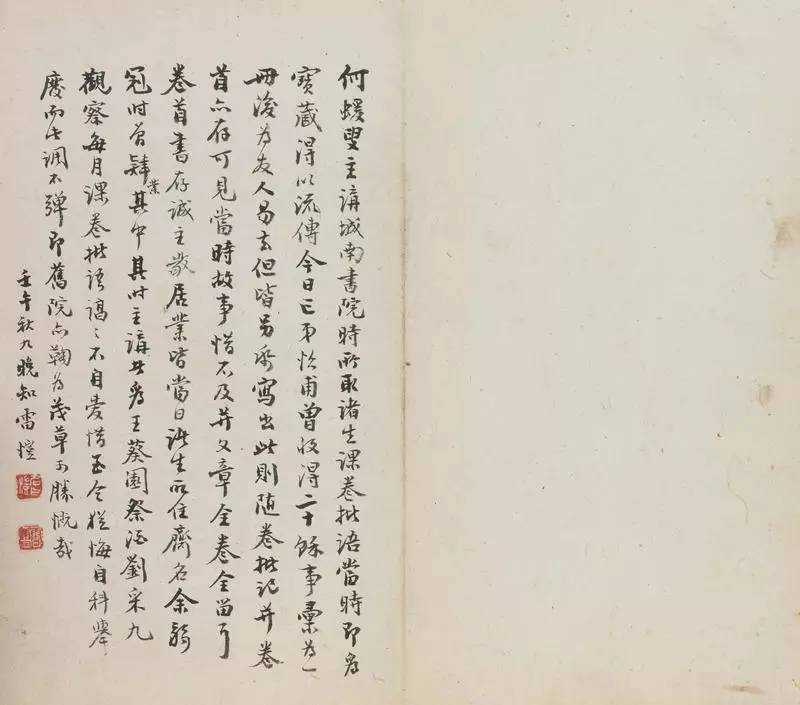 何蝯叟主講城南書院時所取諸生課卷批語當時即為
寶藏得以流傳今日亡弟怡甫曾收得二十餘事彙為一
冊後為友人易去但皆另紙寫出此則隨卷批記并卷
首亦存可見當時故事惜不及并文章全卷全留耳
卷首書存誠主敬居業皆當日諸生所住齋名余弱
冠時曾肄業其中其時主講者為王葵園祭酒劉采九
觀察每月課卷批語諄諄不自愛惜至今猶悔自科舉
廢而此調不彈即舊院亦鞠為茂草可勝慨哉
壬午秋九晚知雷愷